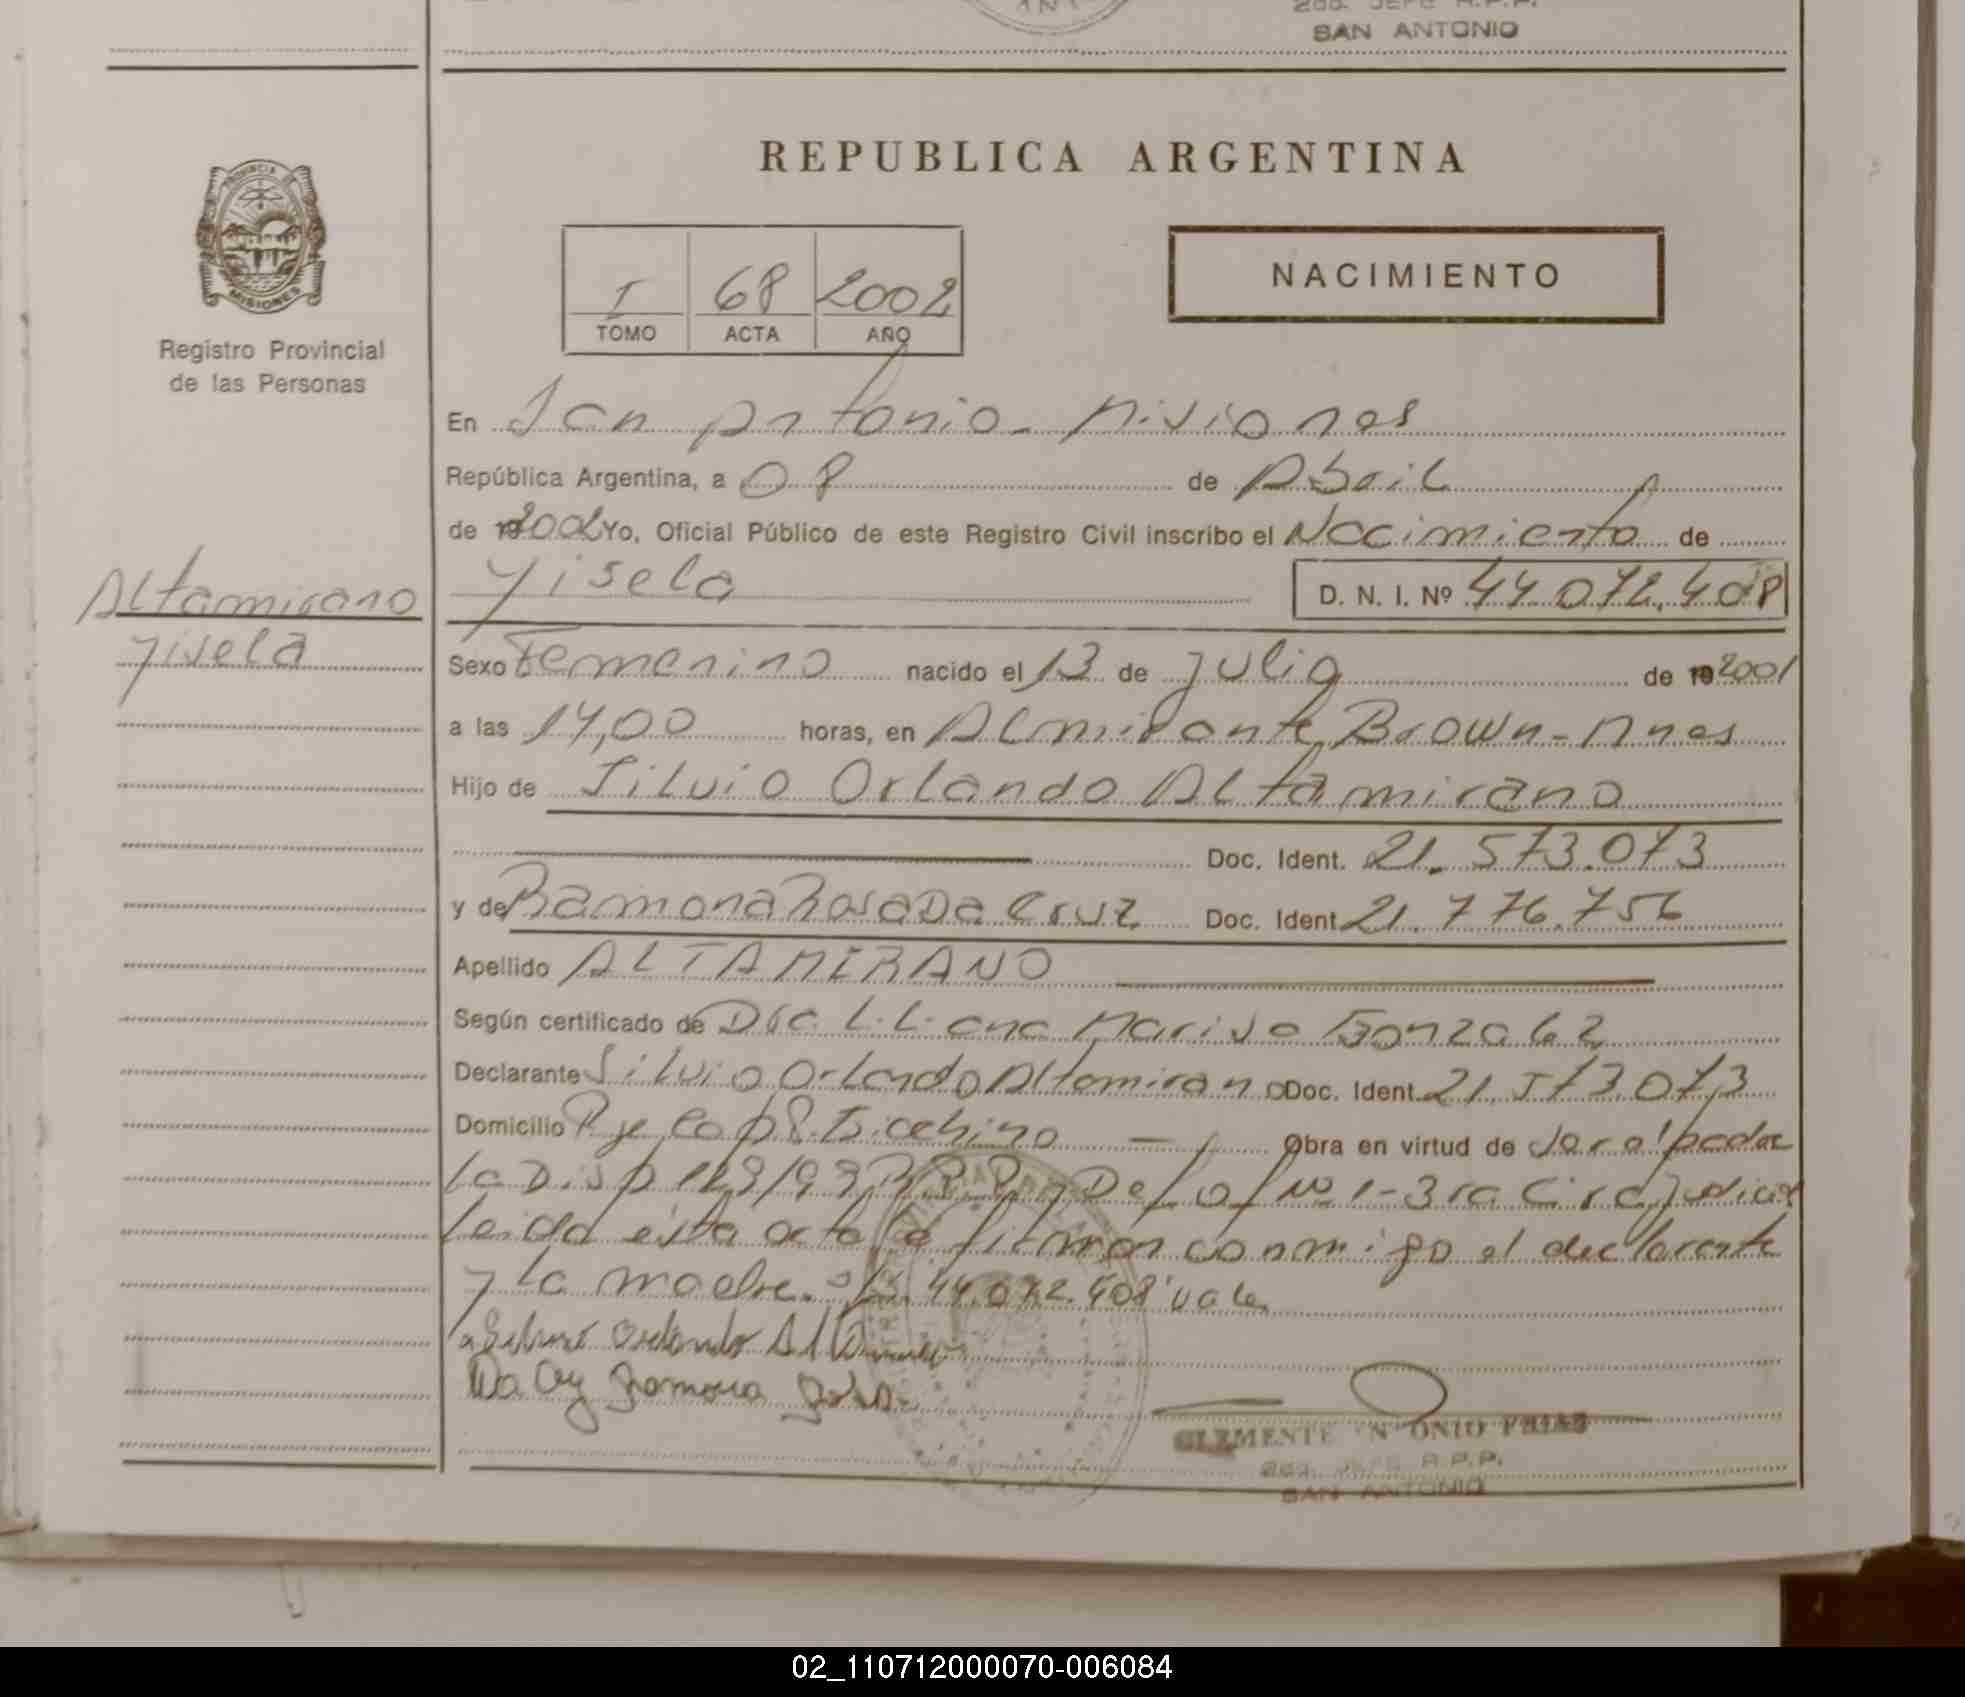 2do. JEFE R.P.P.
SAN ANTONIO
PROVINCIA DE
MISIONES
Registro Provincial
de las Personas
REPUBLICA ARGENTINA
NACIMIENTO
I 68 2002
TOMO ACTA AÑO
En San Antonio - Misiones
República Argentina, a 08 de Abril
de 19 2002 Yo, Oficial Público de este Registro Civil inscribo el Nacimiento de
Yisela D. N. I. Nº 44.072.408
Altamirano
Yisela
Sexo Femenino nacido el 13 de Julio de 19 2001
a las 14,00 horas, en Almirante Brown - Mnes
Hijo de Silvio Orlando Altamirano
Doc. Ident. 21.573.073
y de Ramona Rosa Da Cruz Doc. Ident. 21.776.756
Apellido ALTAMIRANO
Según certificado de Dra. Liliana Marisa Gonzalez
Declarante Silvio Orlando Altamirano Doc. Ident. 21.573.073
Domicilio Obra en virtud de
la Disp 123/99 R.P.P. y De Nº 1 - 3ra Circ Judicial
leida ésta acta la firman conmigo el declarante
y la madre. 44.072.408 vale
Orlando
Da Ramona
CLEMENTE ANTONIO FRIAS
2do. JEFE R.P.P.
SAN ANTONIO
02_110712000070-006084